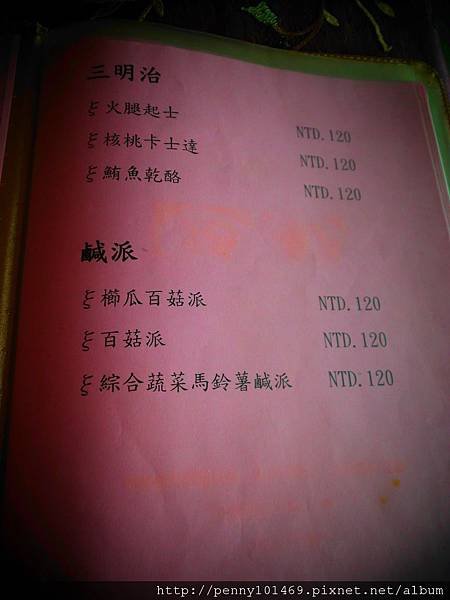 三明治
ξ火腿起士 NTD.120
ξ核桃卡士達 NTD.120
ξ鮪魚乾酪 NTD.120
鹹派
ξ櫛瓜百菇派 NTD.120
ξ百菇派 NTD.120
ξ綜合蔬菜馬鈴薯鹹派 NTD.120
http://penny101469.pixnet.net/album